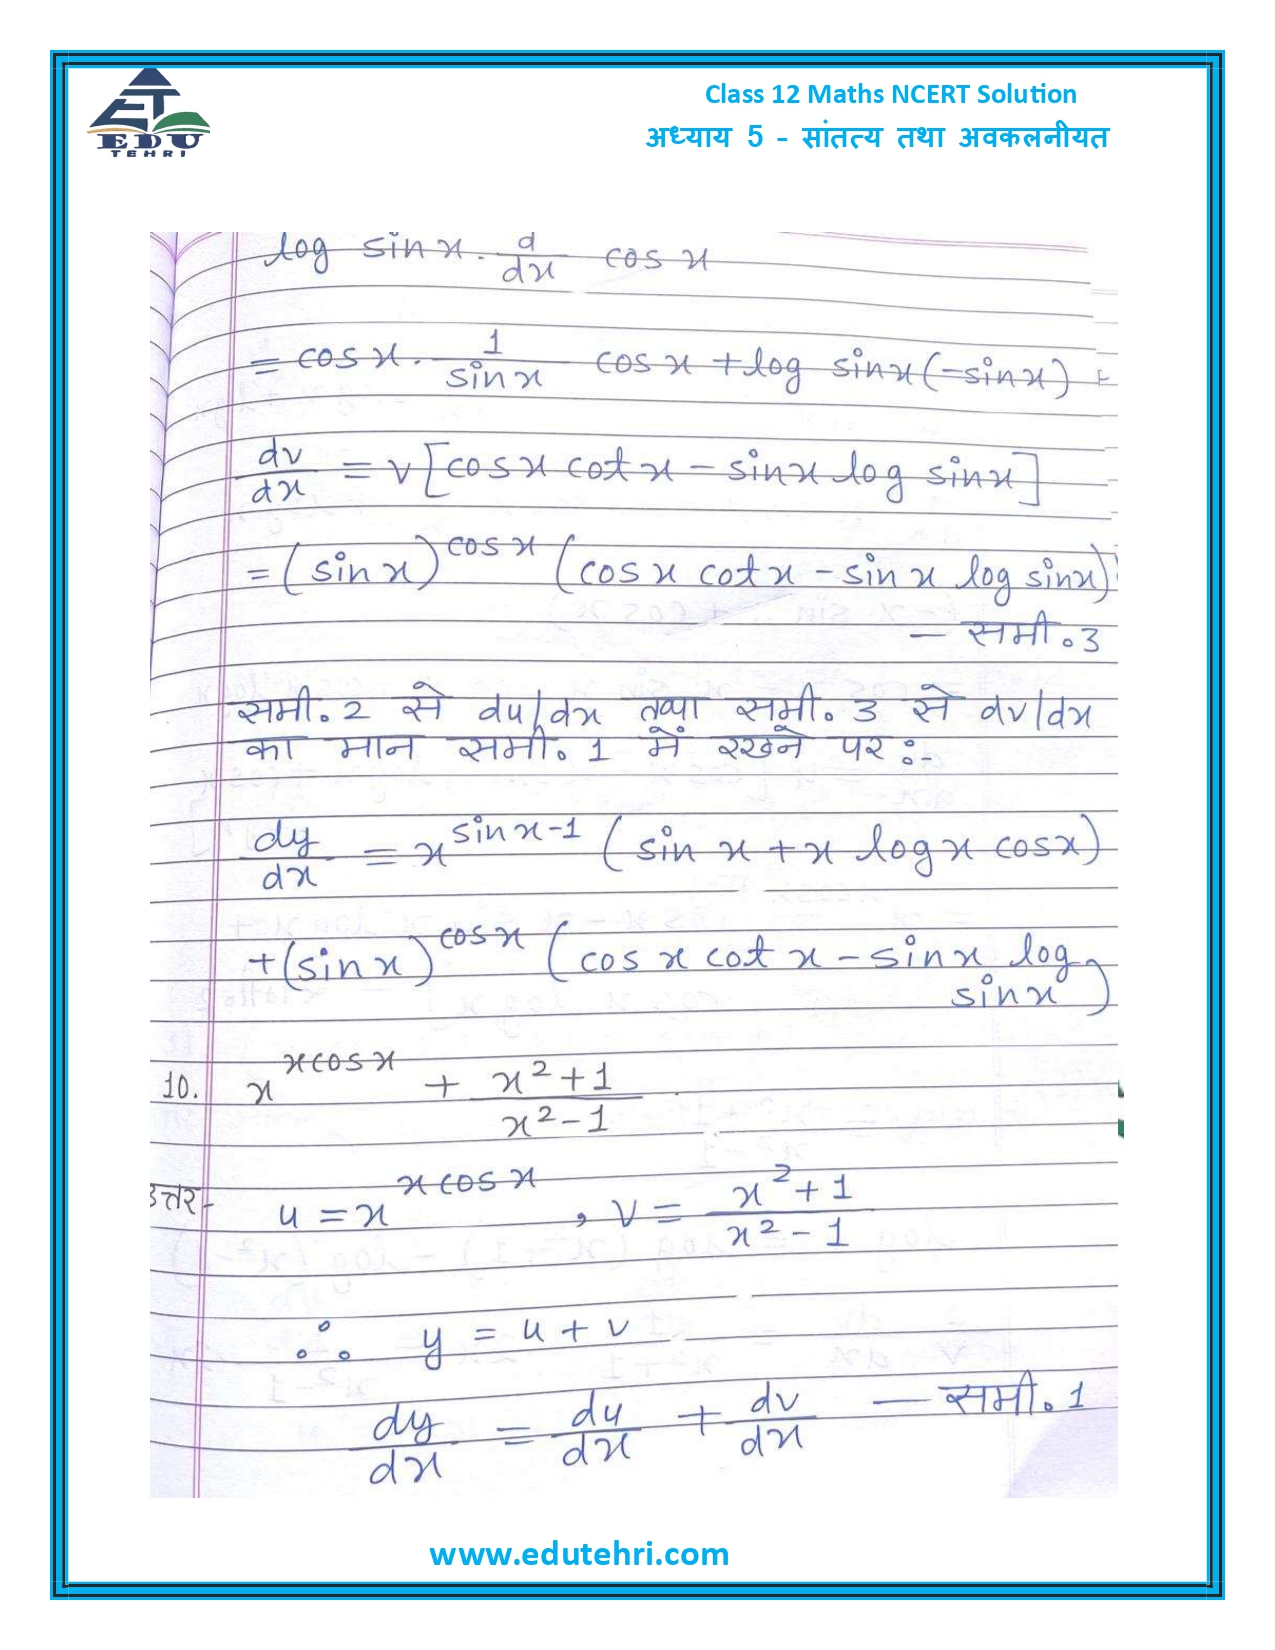 EDU
TEHRI
Class 12 Maths NCERT Solution
अध्याय 5 - सांतत्य तथा अवकलनीयत
log sinx . d/dx cos x
= cosx . 1/sinx cosx + log sinx (-sinx)
dv/dx = v [cosx cotx - sinx log sinx]
= (sinx)^cosx (cosx cotx - sinx log sinx)
- समी. 3
समी. 2 से du/dx तथा समी. 3 से dv/dx
का मान समी. 1 में रखने पर :-
dy/dx = x^sinx-1 (sinx + x logx cosx)
+ (sinx)^cosx (cosx cotx - sinx log
sinx)
10. x^xcosx + x²+1/x²-1
उत्तर- u = x^xcosx , v = x²+1/x²-1
∴ y = u + v
dy/dx = du/dx + dv/dx - समी. 1
www.edutehri.com